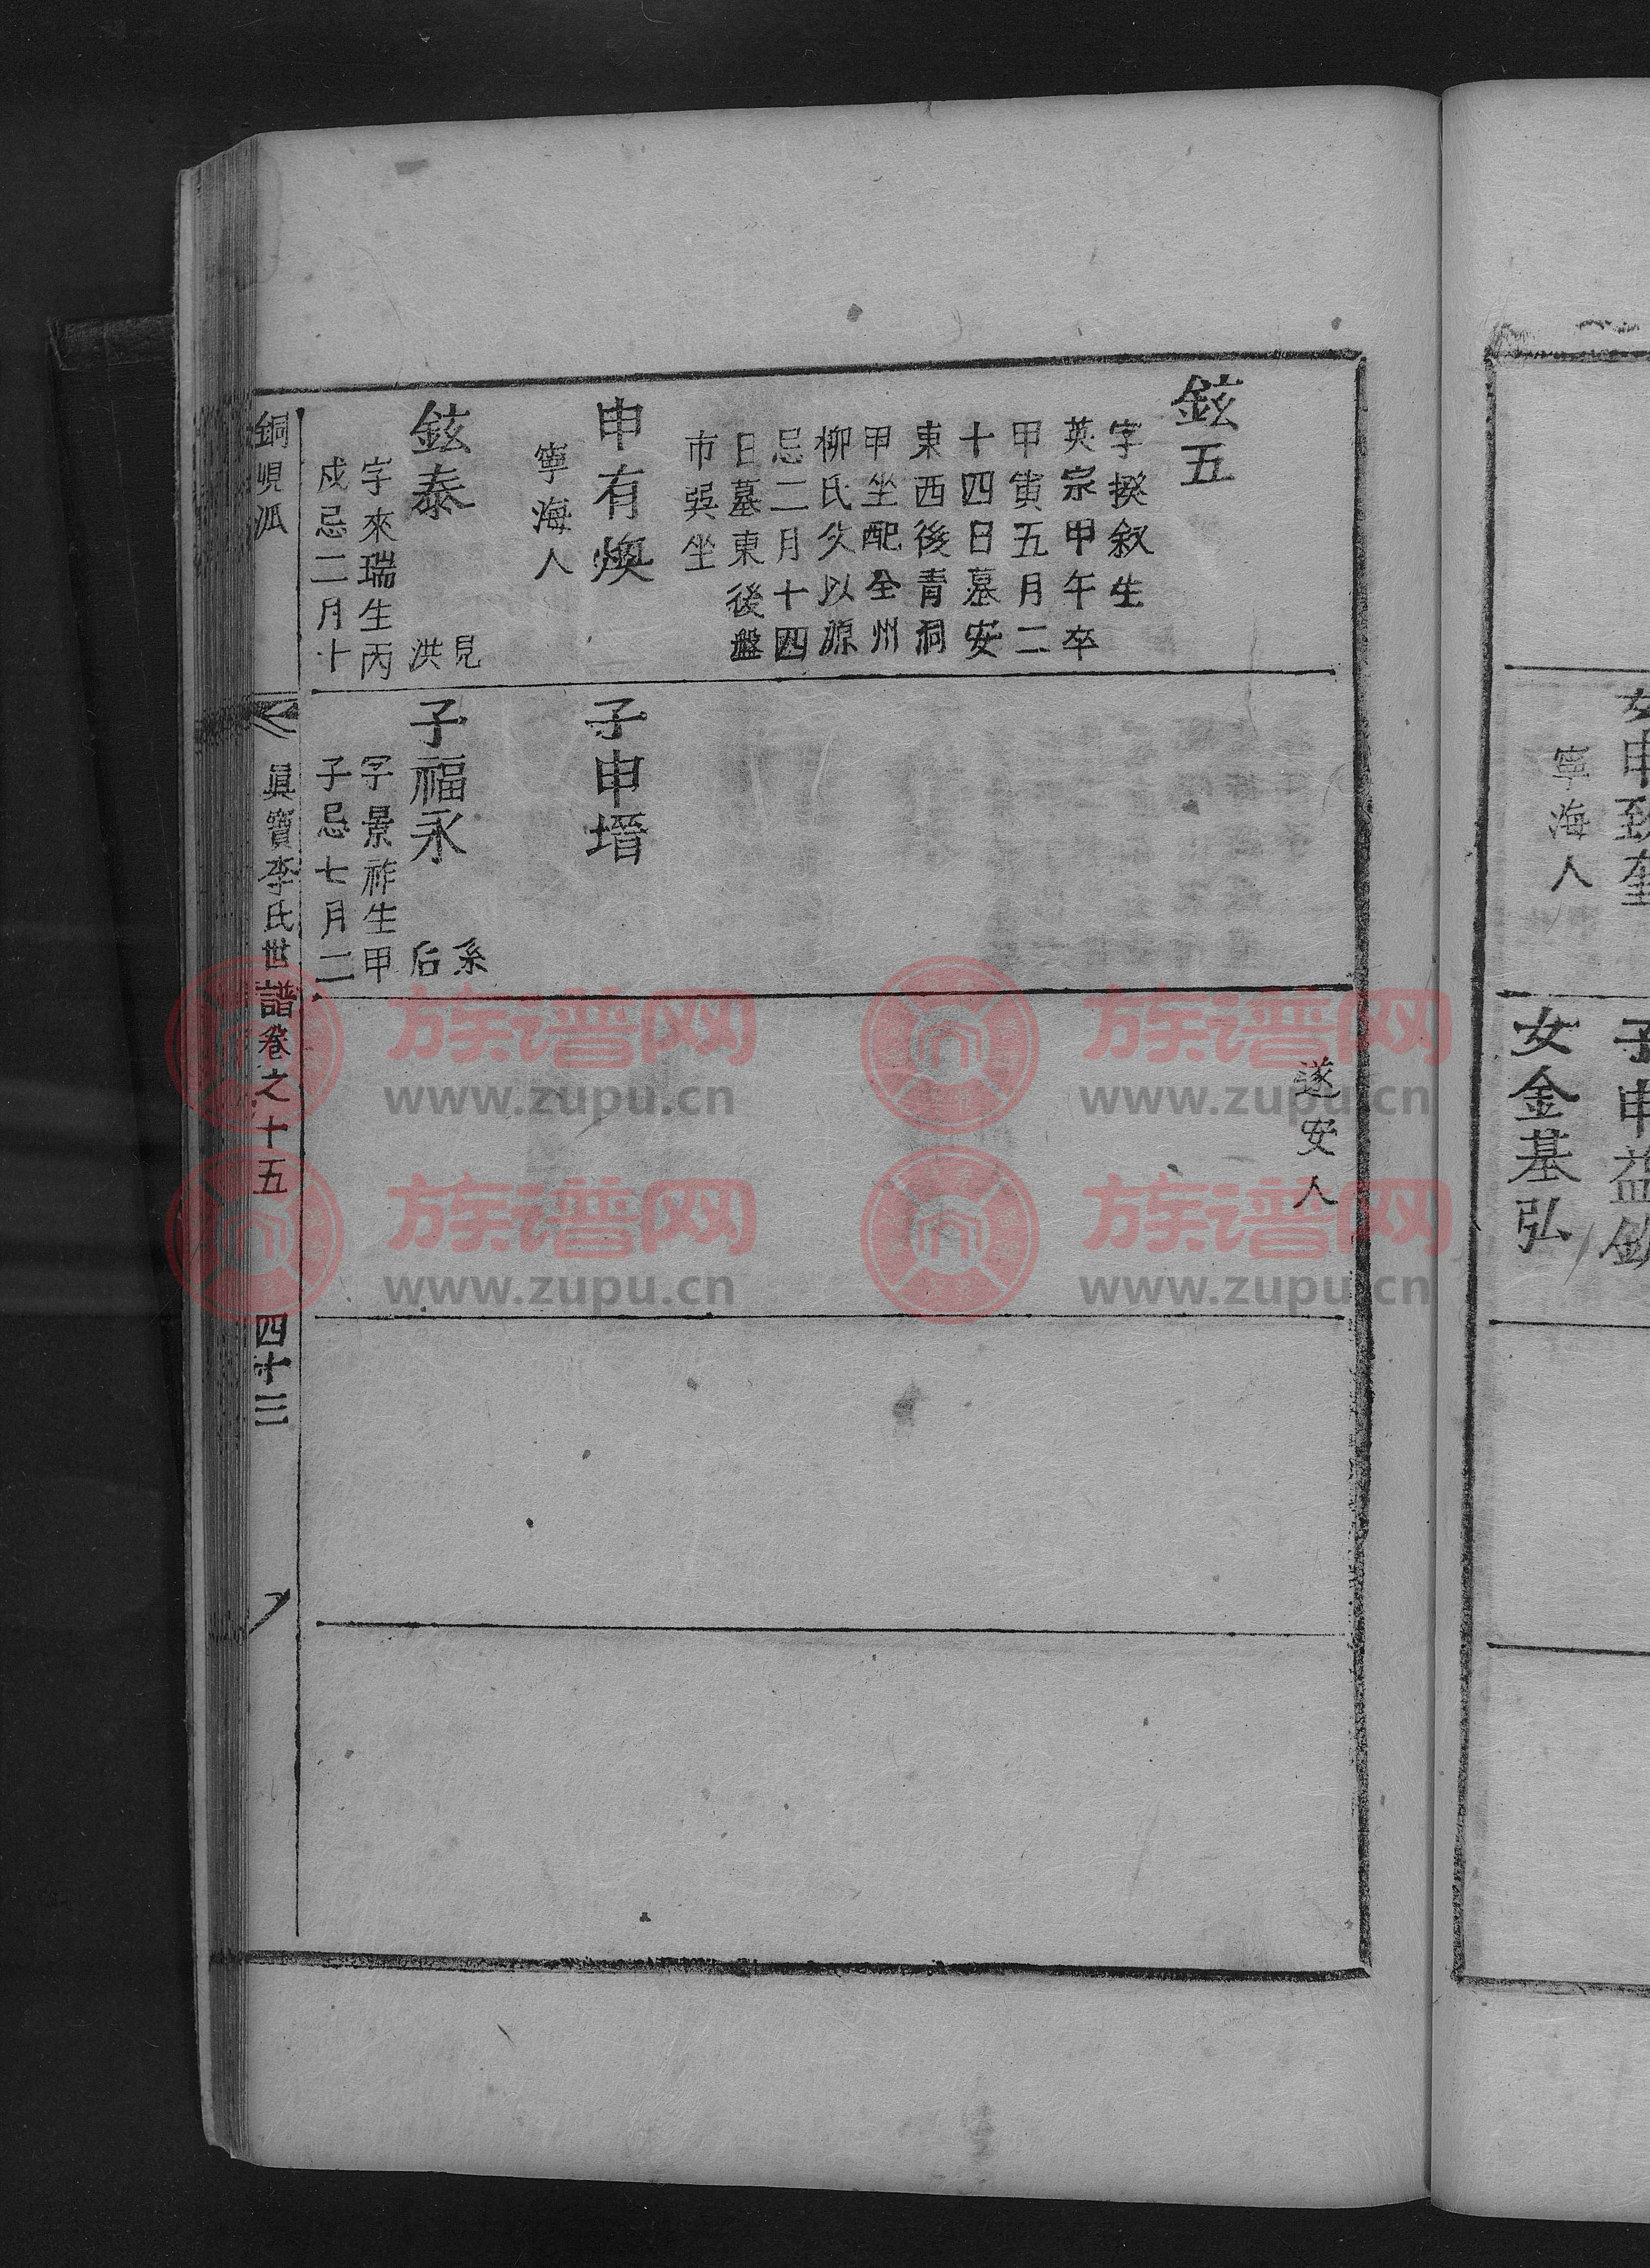 女申致奎
寧海人
子申益欽
女金基弘
遂安人
鉉五
字揆叙生
英宗甲午卒
甲寅五月二
十四日墓安
東西後青洞
甲坐配全州
柳氏父以源
忌二月十四
日墓東後盤
市巽坐
申有煥
寧海人
子申㙷
鉉泰
見
洪
字來瑞生丙
戌忌二月十
子福永
系
后
字景祚生甲
子忌七月二
銅峴派
眞寶李氏世譜卷之十五
四十三
族谱网
www.zupu.cn
族谱网
www.zupu.cn
族谱网
www.zupu.cn
族谱网
www.zupu.cn